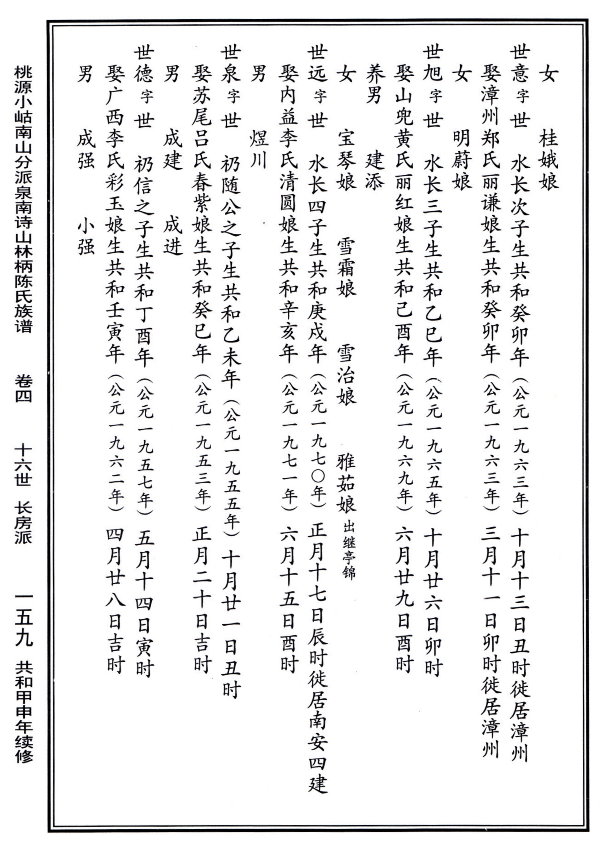 女 桂娥娘
世意字世 水长次子生共和癸卯年（公元一九六三年）十月十三日丑时徙居漳州
娶漳州郑氏丽谦娘生共和癸卯年（公元一九六三年）三月十一日卯时徙居漳州
女 明蔚娘
世旭字世 水长三子生共和乙巳年（公元一九六五年）十月廿六日卯时
娶山兜黄氏丽红娘生共和己酉年（公元一九六九年）六月廿九日酉时
养男 建添
女 宝琴娘 雪霜娘 雪治娘 雅茹娘出继亭锦
世远字世 水长四子生共和庚戌年（公元一九七〇年）正月十七日辰时徙居南安四建
娶内益李氏清圆娘生共和辛亥年（公元一九七一年）六月十五日酉时
男 煜川
世泉字世 礽随公之子生共和乙未年（公元一九五五年）十月廿一日丑时
娶苏尾吕氏春紫娘生共和癸巳年（公元一九五三年）正月二十日吉时
男 成建 成进
世德字世 礽信之子生共和丁酉年（公元一九五七年）五月十四日寅时
娶广西李氏彩玉娘生共和壬寅年（公元一九六二年）四月廿八日吉时
男 成强 小强
桃源小岵南山分派泉南诗山林柄陈氏族谱 卷四 十六世 长房派 一五九 共和甲申年续修